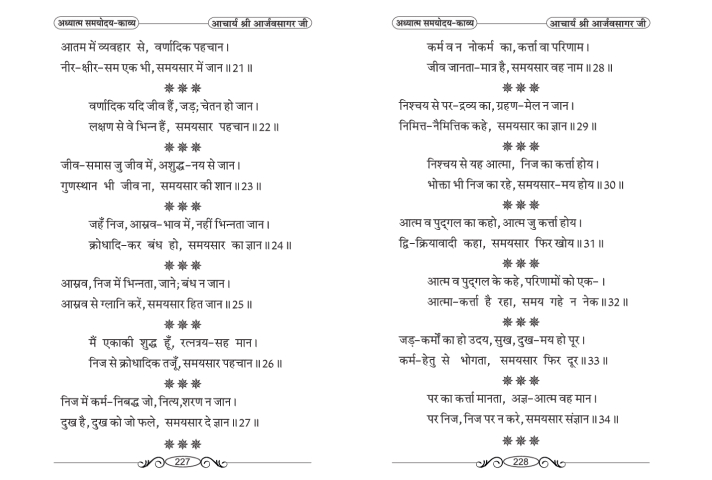 अध्यात्म समयोदय-काव्य
आचार्य श्री आर्जवसागर जी
आतम में व्यवहार से, वर्णादिक पहचान।
नीर-क्षीर-सम एक भी, समयसार में जान॥21॥
वर्णादिक यदि जीव हैं, जड़; चेतन हो जान।
लक्षण से वे भिन्न हैं, समयसार पहचान॥22॥
जीव-समास जु जीव में, अशुद्ध-नय से जान।
गुणस्थान भी जीव ना, समयसार की शान॥23॥
जहँ निज, आस्रव-भाव में, नहीं भिन्नता जान।
क्रोधादि-कर बंध हो, समयसार का ज्ञान॥24॥
आस्रव, निज में भिन्नता, जाने; बंध न जान।
आस्रव से ग्लानि करें, समयसार हित जान॥25॥
मैं एकाकी शुद्ध हूँ, रत्नत्रय-सह मान।
निज से क्रोधादिक तजूँ, समयसार पहचान॥26॥
निज में कर्म-निबद्ध जो, नित्य,शरण न जान।
दुख है, दुख को जो फले, समयसार दे ज्ञान॥27॥
227
अध्यात्म समयोदय-काव्य
आचार्य श्री आर्जवसागर जी
कर्म व न नोकर्म का, कर्त्ता वा परिणाम।
जीव जानता-मात्र है, समयसार वह नाम॥28॥
निश्चय से पर-द्रव्य का, ग्रहण-मेल न जान।
निमित्त-नैमित्तिक कहे, समयसार का ज्ञान॥29॥
निश्चय से यह आत्मा, निज का कर्त्ता होय।
भोक्ता भी निज का रहे, समयसार-मय होय॥30॥
आत्म व पुद्गल का कहो, आत्म जु कर्त्ता होय।
द्वि-क्रियावादी कहा, समयसार फिर खोय॥31॥
आत्म व पुद्गल के कहे, परिणामों को एक-।
आत्मा-कर्त्ता है रहा, समय गहे न नेक॥32॥
जड़-कर्मों का हो उदय, सुख, दुख-मय हो पूर।
कर्म-हेतु से भोगता, समयसार फिर दूर॥33॥
पर का कर्त्ता मानता, अज्ञ-आत्म वह मान।
पर निज, निज पर न करे, समयसार संज्ञान॥34॥
228